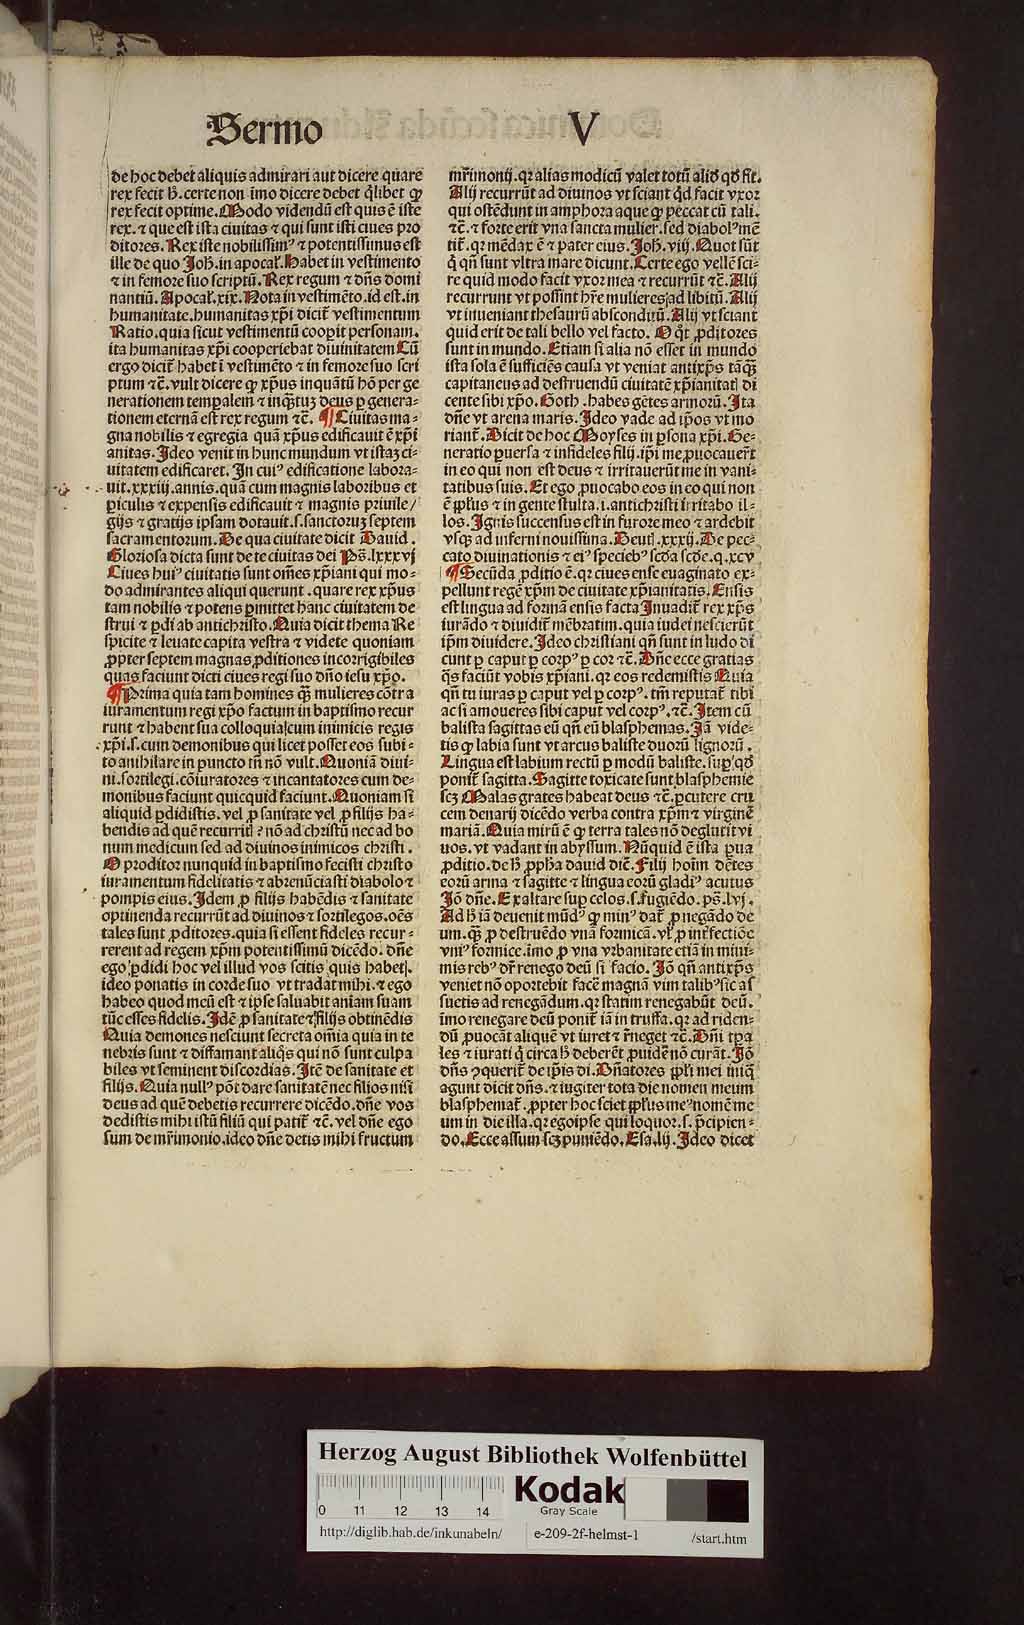 Sermo V
de hoc debet aliquis admirari aut dicere quare
rex fecit h̄. certe non īmo dicere debet q̄libet ꝙ
rex fecit optime. Modo videndū est quis ē iste
rex. ⁊ que est ista ciuitas ⁊ qui sunt isti ciues pro
ditores. Rex iste nobilissimꝰ ⁊ potentissimus est
ille de quo Joh̄. in apocal̄. Habet in vestimento
⁊ in femore suo scriptū. Rex regum ⁊ dn̄s domi
nantiū. Apocal̄. xix. Nota in vestimēto. id est. in
humanitate. humanitas xp̄i dicit̄ vestimentum
Ratio. quia sicut vestimentū cooꝑit personam.
ita humanitas xp̄i cooperiebat diuinitatem Cū
ergo dicit̄ habet ī vestimēto ⁊ in femore suo scri
ptum ⁊c̄. vult dicere ꝙ xp̄us inquātū hō per ge
nerationem temꝑalem ⁊ inq̄stuꝫ deus ꝑ genera-
tionem eternā est rex regum ⁊c̄. ¶ Ciuitas ma-
gna nobilis ⁊ egregia quā xp̄us edificauit ē xp̄i
anitas. Ideo venit in hunc mundum vt istaꝫ ci-
uitatem edificaret. In cuiꝰ edificatione labora-
uit. xxxiij. annis. quā cum magnis laboribus et
ꝑiculis ⁊ expensis edificauit ⁊ magnis priuile/
gijs ⁊ gratijs ipsam dotauit. s. sanctoruꝫ septem
sacramentorum. De qua ciuitate dicit Dauid.
Gloriosa dicta sunt de te ciuitas dei Ps̄. lxxxvj
Ciues huiꝰ ciuitatis sunt oēs xp̄iani qui mo-
do admirantes aliqui querunt. quare rex xp̄us
tam nobilis ⁊ potens ꝑmittet hanc ciuitatem de
strui ⁊ ꝑdi ab antichristo. Quia dicit thema Re
spicite ⁊ leuate capita vestra ⁊ videte quoniam
ꝓpter septem magnas ꝓditiones incorrigibiles
quas faciunt dicti ciues regi suo dn̄o iesu xp̄o.
¶ Prima quia tam homines q̄ꝫ mulieres cōtra
iuramentum regi xp̄o factum in baptismo recur
runt ⁊ habent sua colloquia cum inimicis regis
xp̄i. s. cum demonibus qui licet posset eos subi-
to anihilare in puncto tn̄ nō vult. Quoniā diui-
ni. sortilegi. cōiuratores ⁊ incantatores cum de-
monibus faciunt quicquid faciunt. Quoniam si
aliquid ꝑdidistis. vel ꝓ sanitate vel ꝓ filijs ha-
bendis ad quē recurrit̄? nō ad christū nec ad bo
num medicum sed ad diuinos inimicos christi.
O proditor nunquid in baptismo fecisti christo
iuramentum fidelitatis ⁊ abrenūciasti diabolo ⁊
pompis eius. Idem ꝓ filijs habēdis ⁊ sanitate
optinenda recurrūt ad diuinos ⁊ sortilegos. oēs
tales sunt ꝓditores. quia si essent fideles recur-
rerent ad regem xp̄m potentissimū dicēdo. dn̄e
ego ꝑdidi hoc vel illud vos scitis quis habet.
ideo ponatis in corde suo vt tradat mihi. ⁊ ego
habeo quod meū est ⁊ ip̄se saluabit aniam suam
tūc esses fidelis. Idē ꝓ sanitate ⁊ filijs obtinēdis
Quia demones nesciunt secreta om̄ia quia in te
nebris sunt ⁊ diffamant aliq̄s qui nō sunt culpa
biles vt seminent discordias. Itē de sanitate et
filijs. Quia nullꝰ pōt dare sanitatē nec filios nisi
deus ad quē debetis recurrere dicēdo. dn̄e vos
dedistis mihi istū filiū qui patit̄ ⁊c̄. vel dn̄e ego
sum de mr̄imonio. ideo dn̄e detis mihi fructum
mr̄imonij. qꝛ alias modicū valet totū aliđ qđ fit.
Alij recurrūt ad diuinos vt sciant qđ facit vxor
qui ostēdunt in amphora aque ꝙ peccat cū tali.
⁊c̄. ⁊ forte erit vna sancta mulier. sed diabolꝰ mē
tit̄. qꝛ mēdax ē ⁊ pater eius. Joh̄. viij. Quot sūt
q̄ qn̄ sunt vltra mare dicunt. Certe ego vellē sci-
re quid modo facit vxor mea ⁊ recurrūt ⁊c̄. Alij
recurrunt vt possint hr̄e mulieres ad libitū. Alij
vt inueniant thesaurū absconditū. Alij vt sciant
quid erit de tali bello vel facto. O q̄t ꝓditores
sunt in mundo. Etiam si alia nō esset in mundo
ista sola ē sufficiēs causa vt veniat antixp̄s tāq̄ꝫ
capitaneus ad destruendū ciuitatē xp̄ianitat̄ di
cente sibi xp̄o. Goth. habes gētes armorū. Ita
dn̄e vt arena maris. Ideo vade ad ip̄os vt mo
riant̄. Dicit de hoc Moyses in ꝑsona xp̄i. Ge-
neratio ꝑuersa ⁊ infideles filij. ip̄i me ꝓuocauer̄t
in eo qui non est deus ⁊ irritauerūt me in vani-
tatibus suis. Et ego ꝓuocabo eos in eo qui non
ē ꝓpl̄us ⁊ in gente stulta. i. antichristi irritabo il-
los. Ignis succensus est in furore meo ⁊ ardebit
vsqꝫ ad inferni nouissima. Deut̄. xxxij. De pec-
cato diuinationis ⁊ eiꝰ speciebꝰ scđa scđe. q. xcv
¶ Secūda ꝓditio ē. qꝛ ciues ense euaginato ex-
pellunt regē xp̄m de ciuitate xp̄ianitatis. Ensis
est lingua ad formā ensis facta Inuadit̄ rex xp̄s
iurādo ⁊ diuidit̄ mēbratim. quia iudei nescierūt
ip̄m diuidere. Ideo christiani qn̄ sunt in ludo di
cunt ꝑ caput ꝑ corpꝰ ꝑ cor ⁊c̄. Dn̄e ecce gratias
q̄s faciūt vobis xp̄iani. qꝛ eos redemistis Quia
qn̄ tu iuras ꝑ caput vel ꝑ corpꝰ. tm̄ reputat̄ tibi
ac si amoueres sibi caput vel corpꝰ. ⁊c̄. Item cū
balista sagittas eū qn̄ eū blasphemas. Jā vide-
tis ꝙ labia sunt vt arcus baliste duorū lignorū.
Lingua est labium rectū ꝑ modū baliste. suꝑ qđ
ponit̄ sagitta. Sagitte toxicate sunt blasphemie
scꝫ Malas grates habeat deus ⁊c̄. ꝑcutere cru
cem denarij dicēdo verba contra xp̄m ⁊ virginē
mariā. Quia mirū ē ꝙ terra tales nō deglutit vi
uos. vt vadant in abyssum. Nūquid ē ista ꝑua
ꝓditio. de h̄ ꝓph̄a dauid dic̄. Filij hoīm dētes
eorū arma ⁊ sagitte ⁊ lingua eorū gladiꝰ acutus
Jō dn̄e. Exaltare suꝑ celos. s. fugiēdo. ps̄. lvj.
Ad h̄ iā deuenit mūdꝰ ꝙ minꝰ dat̄ ꝓ negādo de
um. q̄ꝫ ꝓ destruēdo vnā formicā. vl̄ ꝓ int̄fectiōe
vniꝰ formice. īmo ꝓ vna vrbanitate etiā in mini-
mis rebꝰ dr̄ renego deū si facio. Jō qn̄ antixp̄s
veniet nō oportebit facē magnā vim talibꝰ sic as
suetis ad renegādum. qꝛ statim renegabūt deū.
īmo renegare deū ponit̄ iā in truffa. qꝛ ad riden-
dū ꝓuocāt aliquē vt iuret ⁊ r̄neget ⁊c̄. Dn̄i tꝑa
les ⁊ iurati q̄ circa h̄ deberēt ꝓuidē nō curāt. Jō
dn̄s ꝯquerit̄ de ip̄is di. Dn̄atores ꝓpl̄i mei iniq̄
agunt dicit dn̄s. ⁊ iugiter tota die nomen meum
blasphemat̄. ꝓpter hoc sciet ꝓpl̄us meꝰ nomē me
um in die illa. qꝛ ego ip̄e qui loquor. s. p̄cipien-
do. Ecce assum scꝫ puniēdo. Esa. lij. Ideo dicet
Herzog August Bibliothek Wolfenbüttel
0 11 12 13 14
Kodak
Gray Scale
http://diglib.hab.de/inkunabeln/ e-209-2f-helmst-1 /start.htm